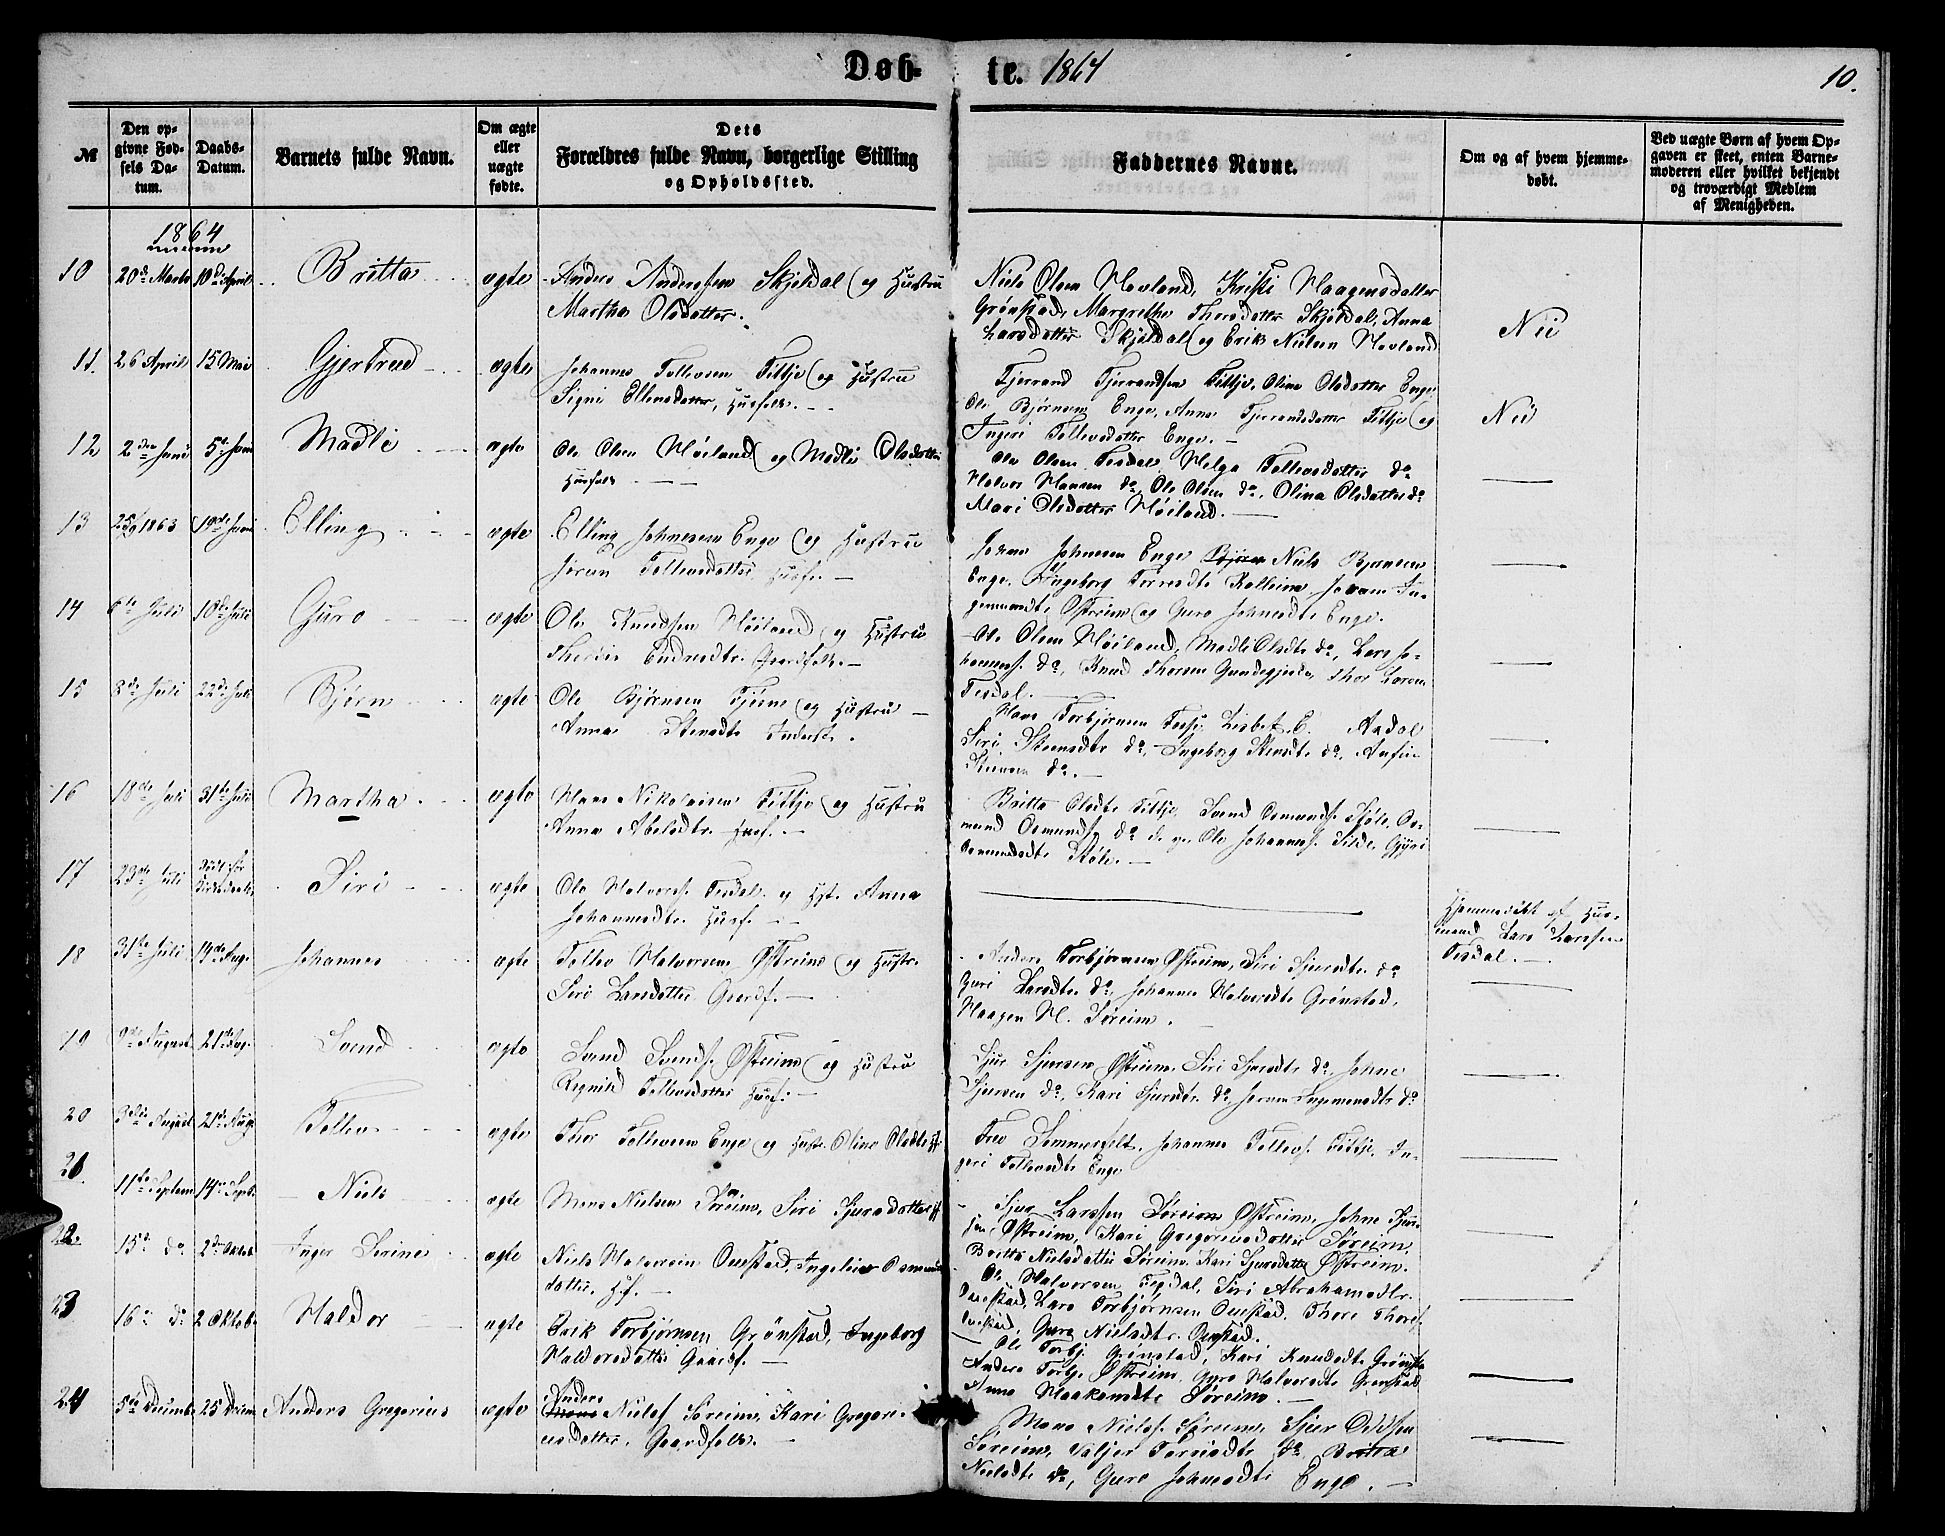 Døb-
te. 1864
10.
№
Den op-
givne Fød-
sels Da-
tum.
Daabs-
Datum.
Barnets fulde Navn.
Om ægte
eller
uægte
fødte.
Dets
Forældres fulde Navn, borgerlige Stilling
og Opholdssted.
Faddernes Navne.
Om og af hvem hjemme-
døbt.
Ved uægte Børn af hvem Op-
gaven er skeet, enten Barne-
moderen eller hvilket bekjendt
og troværdigt Medlem
af Menigheden.
1864
10 20de Marts 10de April Britta ægte Anders Anderssen Skjeldal og Hustru
Martha Olsdatter.
Niels Olsen Hovland, Kristi Haagensdatter
Grønstad, Margrethe Thorsdatter Skjeldal, Anna
Larsdatter Skjeldal og Erik Nielsen Hovland
Nei
11. 26 April 15 Mai Gjertrud ægte Johannes Tollevsen Fittje og Hustru
Signi Ellensdatter, Husfolk.
Tjerrand Tjerrandsen Fittje, Olina Olsdatter Enge
Ole Bjørnsen Enge, Anna Tjerrandsdatter Fittje og
Ingeri Tollevsdatter Enge.
Nei
12 2den Juni 5te Juni Madli ægte Ole Olsen Høiland og Madli Olsdatter
Husfolk
Ole Olsen Tesdal, Helga Tollevsdatter do
Halvor Hansen do, Ole Olsen do, Olina Olsdatter do
Mari Olsdatter Høiland.
13 1863 19de Juni Elling ægte Elling Johnesen Enge og Hustru
Jorun Tollevsdatter Husf.
Johnesen Enge Bjørn Niels Bjørnsen
Enge, Ingeborg
Østreim og Guro Johnesdt. Enge.
14 6te Juli 10de Juli Guro ægte Ole Knudsen Høiland og Hustru
Gaardfolk
Ole Olsen Høiland, Madli Olsdt. do, Lars Jo-
hanness. do, Knud Thorsen Thor Larsen
Tesdal.
15 8de Juli 22de Juli Bjørn ægte Ole Bjørnsen og Hustru
Anna Stensdt.
Hans Torbjørnsen Lisbet E. Aadal
Siri Steensdtr do, Ingeborg Stensdt. do,
Steensen do.
16 18de Juli 31te Juli Martha ægte Hans Nikolaisen Fittje og Hustru
Anna Abelsdtr. Husf.
Britta Olsdt. Fittje, Svend Osmunds. Støle, Os-
mund Osmunds. do Ole Johanness. Gjyri
Osmundsdt. Støle.
17 23de Juli Siri ægte Ole Halvors. Tesdal og Hst. Anna
Johannesdtr. Husf.
Hjemmedøbt af Hus-
mand Lars Larssen
Tesdal.
18 31te Juli 14de Aug. Johannes ægte Tollev Halvorsen Østreim og Hustr.
Siri Larsdatter Gaardf.
Anders Torbjørnsen Østreim, Siri Sjursdtr. do
Guri Larsdtr. do, Johannes Halvorsdt. Grønstad,
Haagen H. Søreim.
19 9de August 21de Aug. Svend ægte Svend Svends. Østreim og Hustru
Ragnild Tollevsdatter Husf.
Sjur Sjursen Østreim, Siri Sjursdtr. do, Johne
Sjursen do, Kari Sjursdtr. do, Jorun Ingemundsdtr do
20 3die August 21de Aug. Tollev ægte Thor Tollevsen Enge og Hust. Olina Olsdtr.
Sommerfelt, Johannes Tollevs. Fittje, In-
geri Tollevsdt. Enge
21. 11te Septem 14de Sept. Niels ægte Mons Nielsen Søreim, Siri Sjursdatter
Sjur Larssen Søreim Østreim, Johne Sjur-
sen Østreim, Kari Gregoriusdatter Søreim,
Britta Nielsdatter Søreim, Kari Sjursdatter Østreim.
22. 15de do 2den Oktob Inger Serine ægte Niels Halvorsen Ouestad, Ingeleiv Osmunds
datter, Hf.
Ole Halvorsen Tesdal, Siri Abrahamsdtr.
Ouestad, Lars Torbjørnsen Ouestad, Thore Thores.
Ouestad, Guro Nielsdtr. Ouestad.
23 16de do 2 Oktob. Haldor ægte Erik Torbjørnsen Grønstad, Ingeborg
Haldorsdatter Gaardf.
Ole Torbj. Grønstad, Kari Knudsdt. Grønsta
Anders Torbj. Østreim, Guro Halvorsdt. Grønstad
Anna Haakensdt. Søreim.
24 5te Decemb 25 Decem Anders Gregorius ægte Anders
Mons Niels. Søreim, Kari Gregori-
usdatter, Gaardfolk.
Mons Niels. Søreim, Sjur
Søreim, do Britta
Nielsdt. do, Guro Johnesdt. Enge.